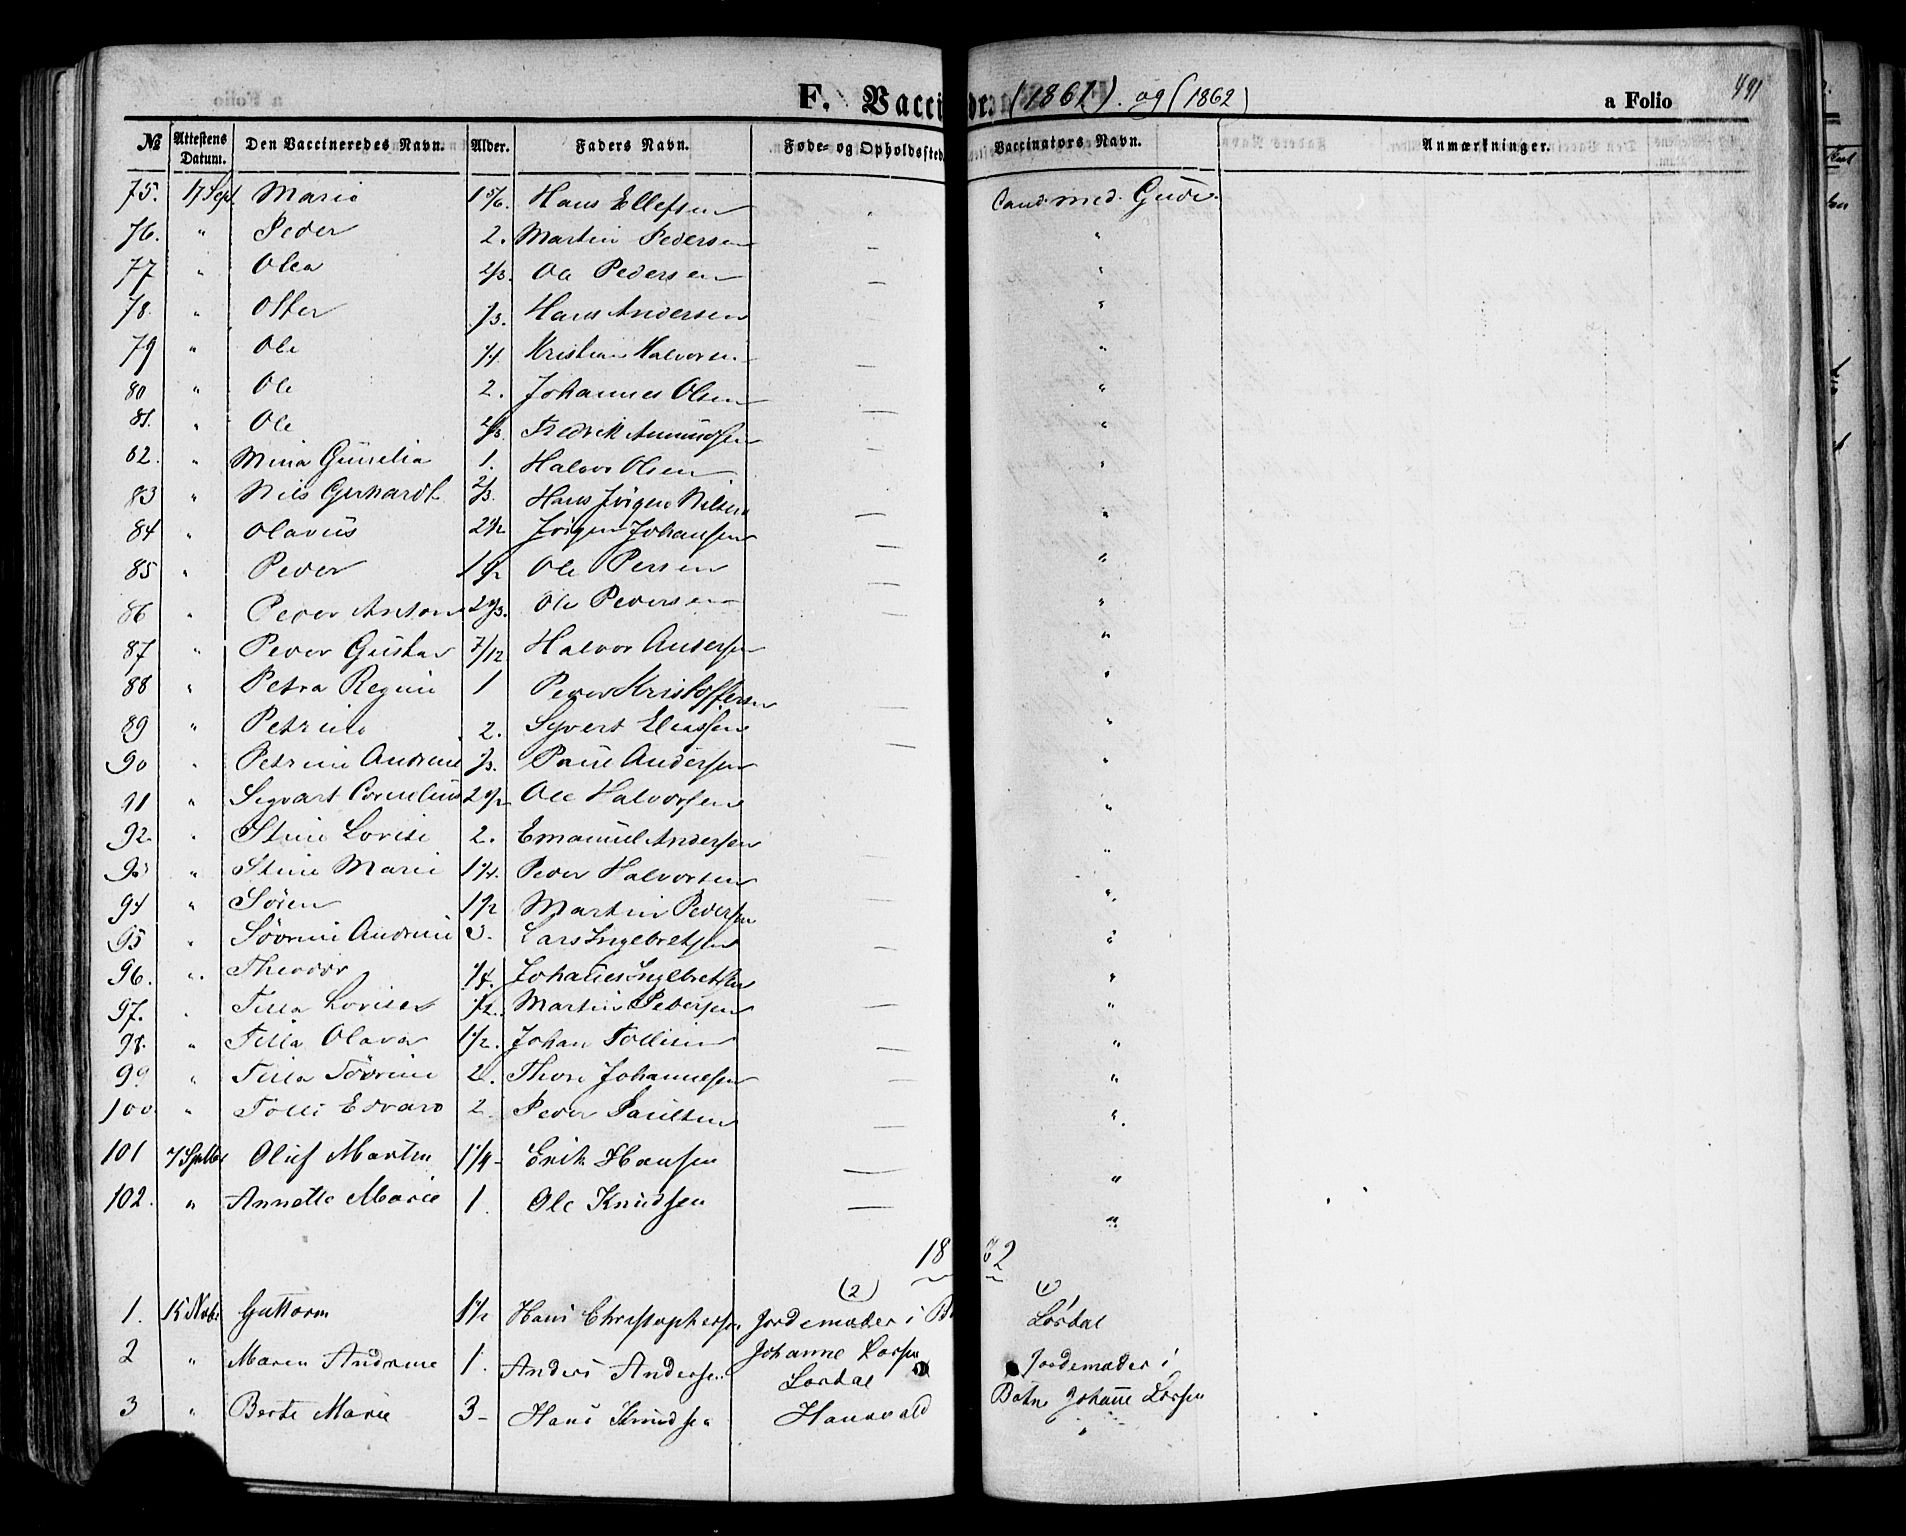 F. Vaccinerede (1861). og (1862) a Folio 491
№ Attestens Datum. Den Vaccineredes Navn. Alder. Faders Navn. Føde- og Opholdssted. Vaccinators Navn. Anmærkninger.
75. 17 Sept. Marie 1 5/6. Hans Ellefsen – Cand med. Gude.
76. " Peder 2. Martin Pedersen – "
77 " Olea 2/3. Ole Pedersen – "
78. " Otter 1/3. Hans Andersen – "
79 " Ole 1/4. Kristian Halvorsen – "
80 " Ole 2. Johannes Olsen – "
81. " Ole 2/3. Fredrik Amundsen – "
82. " Mina Gunelia 1. Halvor Olsen – "
83 " Nils Gerhardt 2/3. Hans Jörgen Nilsen – "
84 " Olavus 2 1/2 Jörgen Johansen – "
85 " Peder 1 1/2 Ole Persen – "
86 " Peder Anton 2 2/3. Ole Pedersen – "
87 " Peder Gustav 7/12 Halvor Andersen – "
88 " Petra Regine 1 Peder Kristoffersen – "
89 " Petrine 2. Syvert Eliassen – "
90 " Petrine Andrine 1/3. Paul Andersen – "
91 " Segvart Cornelius 2 1/2 Ole Halvorsen – "
92. " Stine Lovise 2. Emanuel Andersen – "
93 " Stine Marie 1 1/4. Peder Halvorsen – "
94 " Sören 1 1/2 Martin Pedersen – "
95 " Sövrine Andrine 3. Lars Ingebretsen – "
96. " Theodor 1/4. Johannes Ingebretsen – "
97. " Tilla Lovise 1/2. Martin Pedersen – "
98. " Tilla Olava 1 1/2. Johan Tollisen – "
99 " Tilla Sövrine 2. Thore Johannesen – "
100 " Tolli Edvard 2. Peder Paulsen – "
101 7 Septbr Oluf Martin 1 1/4 – Erik Hansen – "
102. " Annette Marie 1. Ole Knudsen – "
1862
(2) (1)
1. 15 Novbr Guttorm 1 1/2 Hans Christophersen Jordemoder i B Lösdal
2 " Maren Andrine 1. Anders Andersen Johanne Larsen Lösdal Jordemoder i
3 " Berte Marie 3 – Hans Knudsen Hanevold Botne Johanne Larsen
"